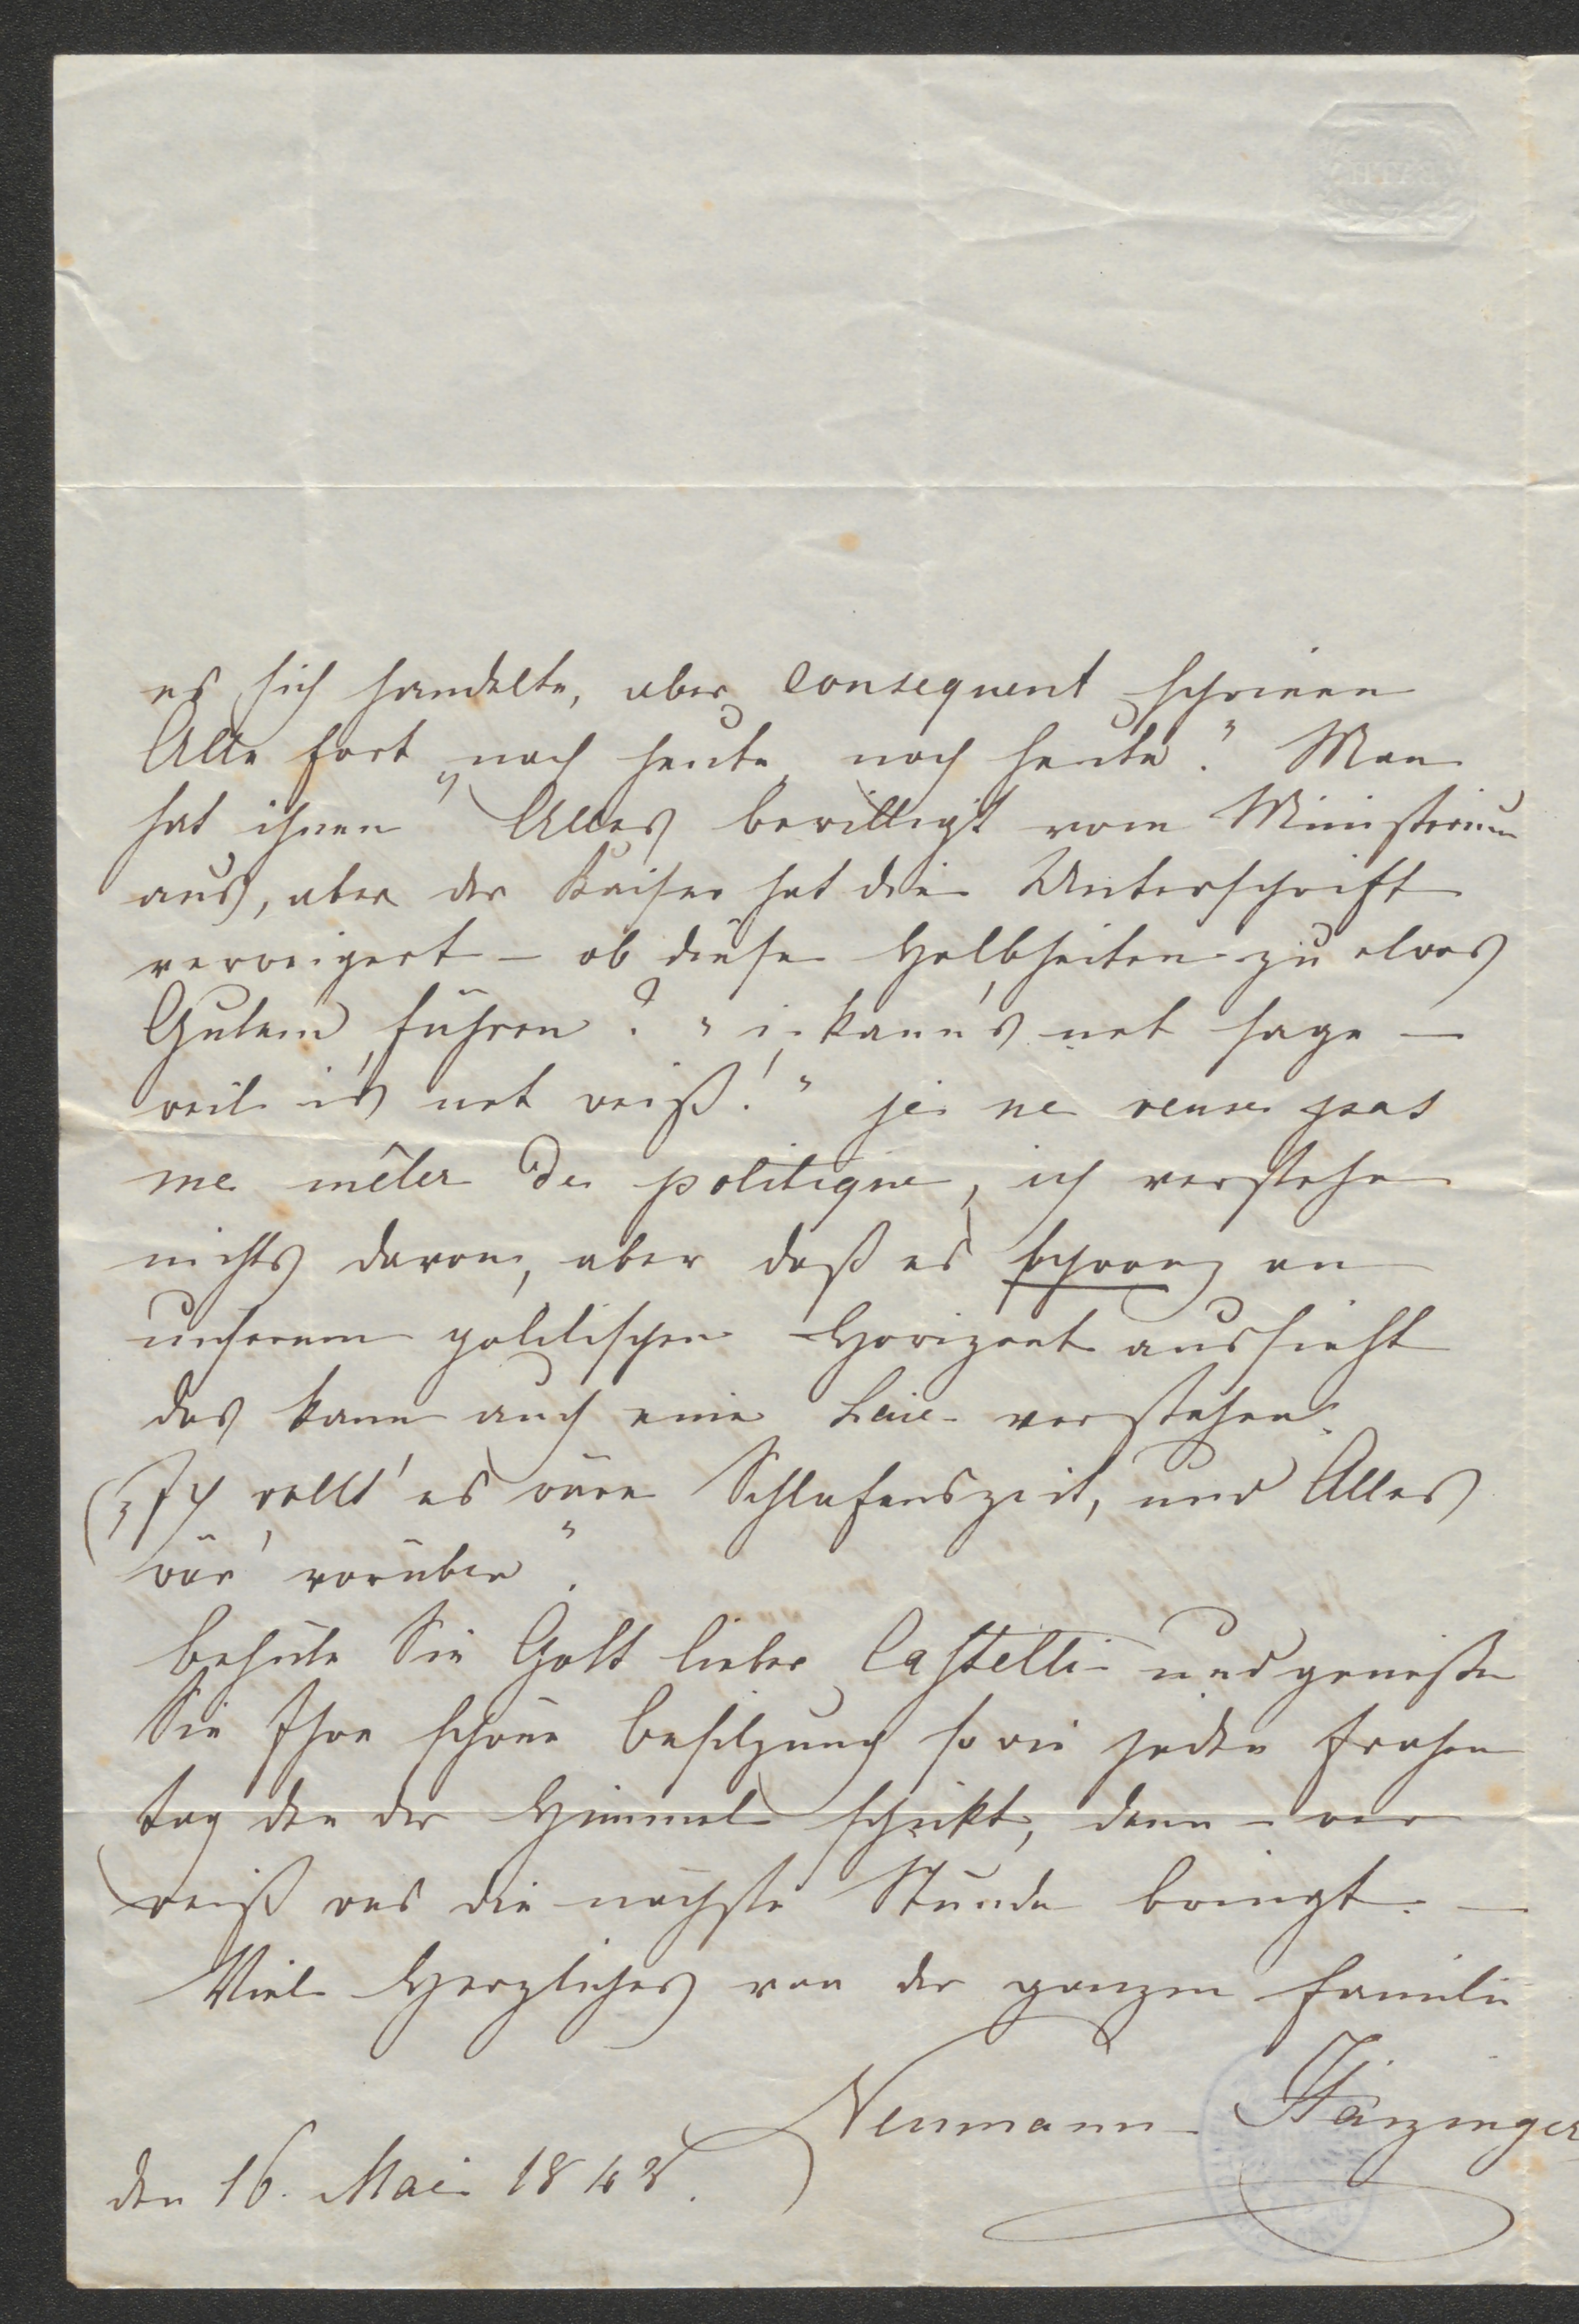 es sich handelte, aber consequent schrieen
Alle fort „noch heute, noch heute". Man
hat ihnen Alles bewilligt vom Ministerium
aus, aber der Kaiser hat die Unterschrift
verweigert – ob diese Halbheiten zu etwas
Gutem führen? „i kann's net sage –
weil i's net weiß!" je ne veux pas
me mêler de politique, ich verstehe
nichts davon, aber daß es schwarz an
unserem politischen Horizont aussieht
das kann auch eine Laie verstehen.
„Ich wollt' es wäre Schlafenszeit, und Alles
wär' vorüber".
Behüte Sie Gott lieber Castelli und genießen
Sie Ihre schöne Besitzung so wie jeden frohen
Tag den der Himmel schickt, denn – wer
weiß was die nächste Stunde bringt. –
Viel Herzliches von der ganzen Familie
Neumann
den 16. Mai 1848.